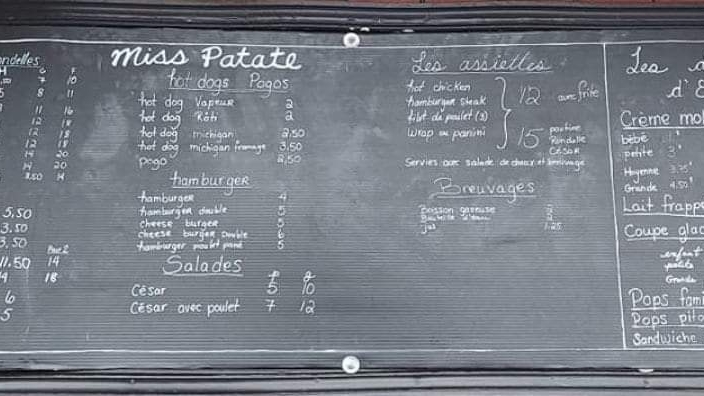 ondelles
G
7 10
5 8 11
11 16
12 18
12 18
14 20
14 20
3.50 14
5,50
3.50
3.50
Pour 2
11.50 14
14 18
6
5
Miss Patate
hot dogs Pogos
hot dog Vapeur 2
hot dog Rôti 2
hot dog michigan 2,50
hot dog michigan fromage 3,50
pogo 2,50
hamburger
hamburger 4
hamburger double 5
cheese burger 5
cheese burger double 6
hamburger poulet pané 5
Salades
P G
César 5 10
César avec poulet 7 12
Les assiettes
hot chicken
hamburger steak
filet de poulet (3)
wrap ou panini
12 avec frite
15 poutine
Rondelle
César
Servies avec salade de choux et breuvage
Breuvages
Boisson gazeuse
Bouteille d'eau
jus 1.25
Les
d'
Crème mol
bébé
petite
Moyenne 3.75
Grande 4.50
Lait frapp
Coupe glac
enfant
petite
Grande
Pops fami
Pops pit
Sandwiche